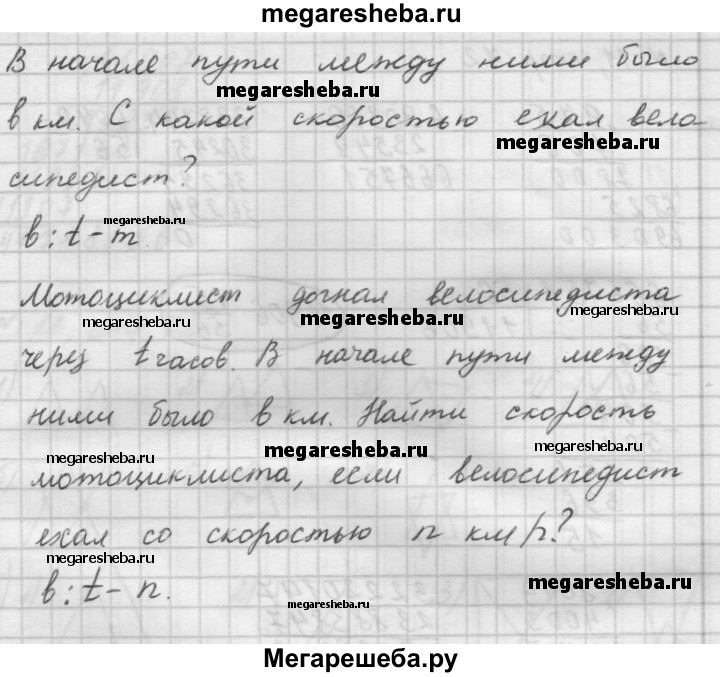 megaresheba.ru
В начале пути между ними было
megaresheba.ru
в км. С какой скоростью ехал вело
megaresheba.ru
сипедист?
megaresheba.ru
в : t - m.
Мотоциклист догнал велосипедиста
megaresheba.ru megaresheba.ru megaresheba.ru
через t часов. В начале пути между
ними было в км. Найти скорость
megaresheba.ru megaresheba.ru megaresheba.ru
мотоциклиста, если велосипедист
ехал со скоростью n км/ч?
megaresheba.ru megaresheba.ru
в : t - n.
megaresheba.ru
Мегарешеба.ру